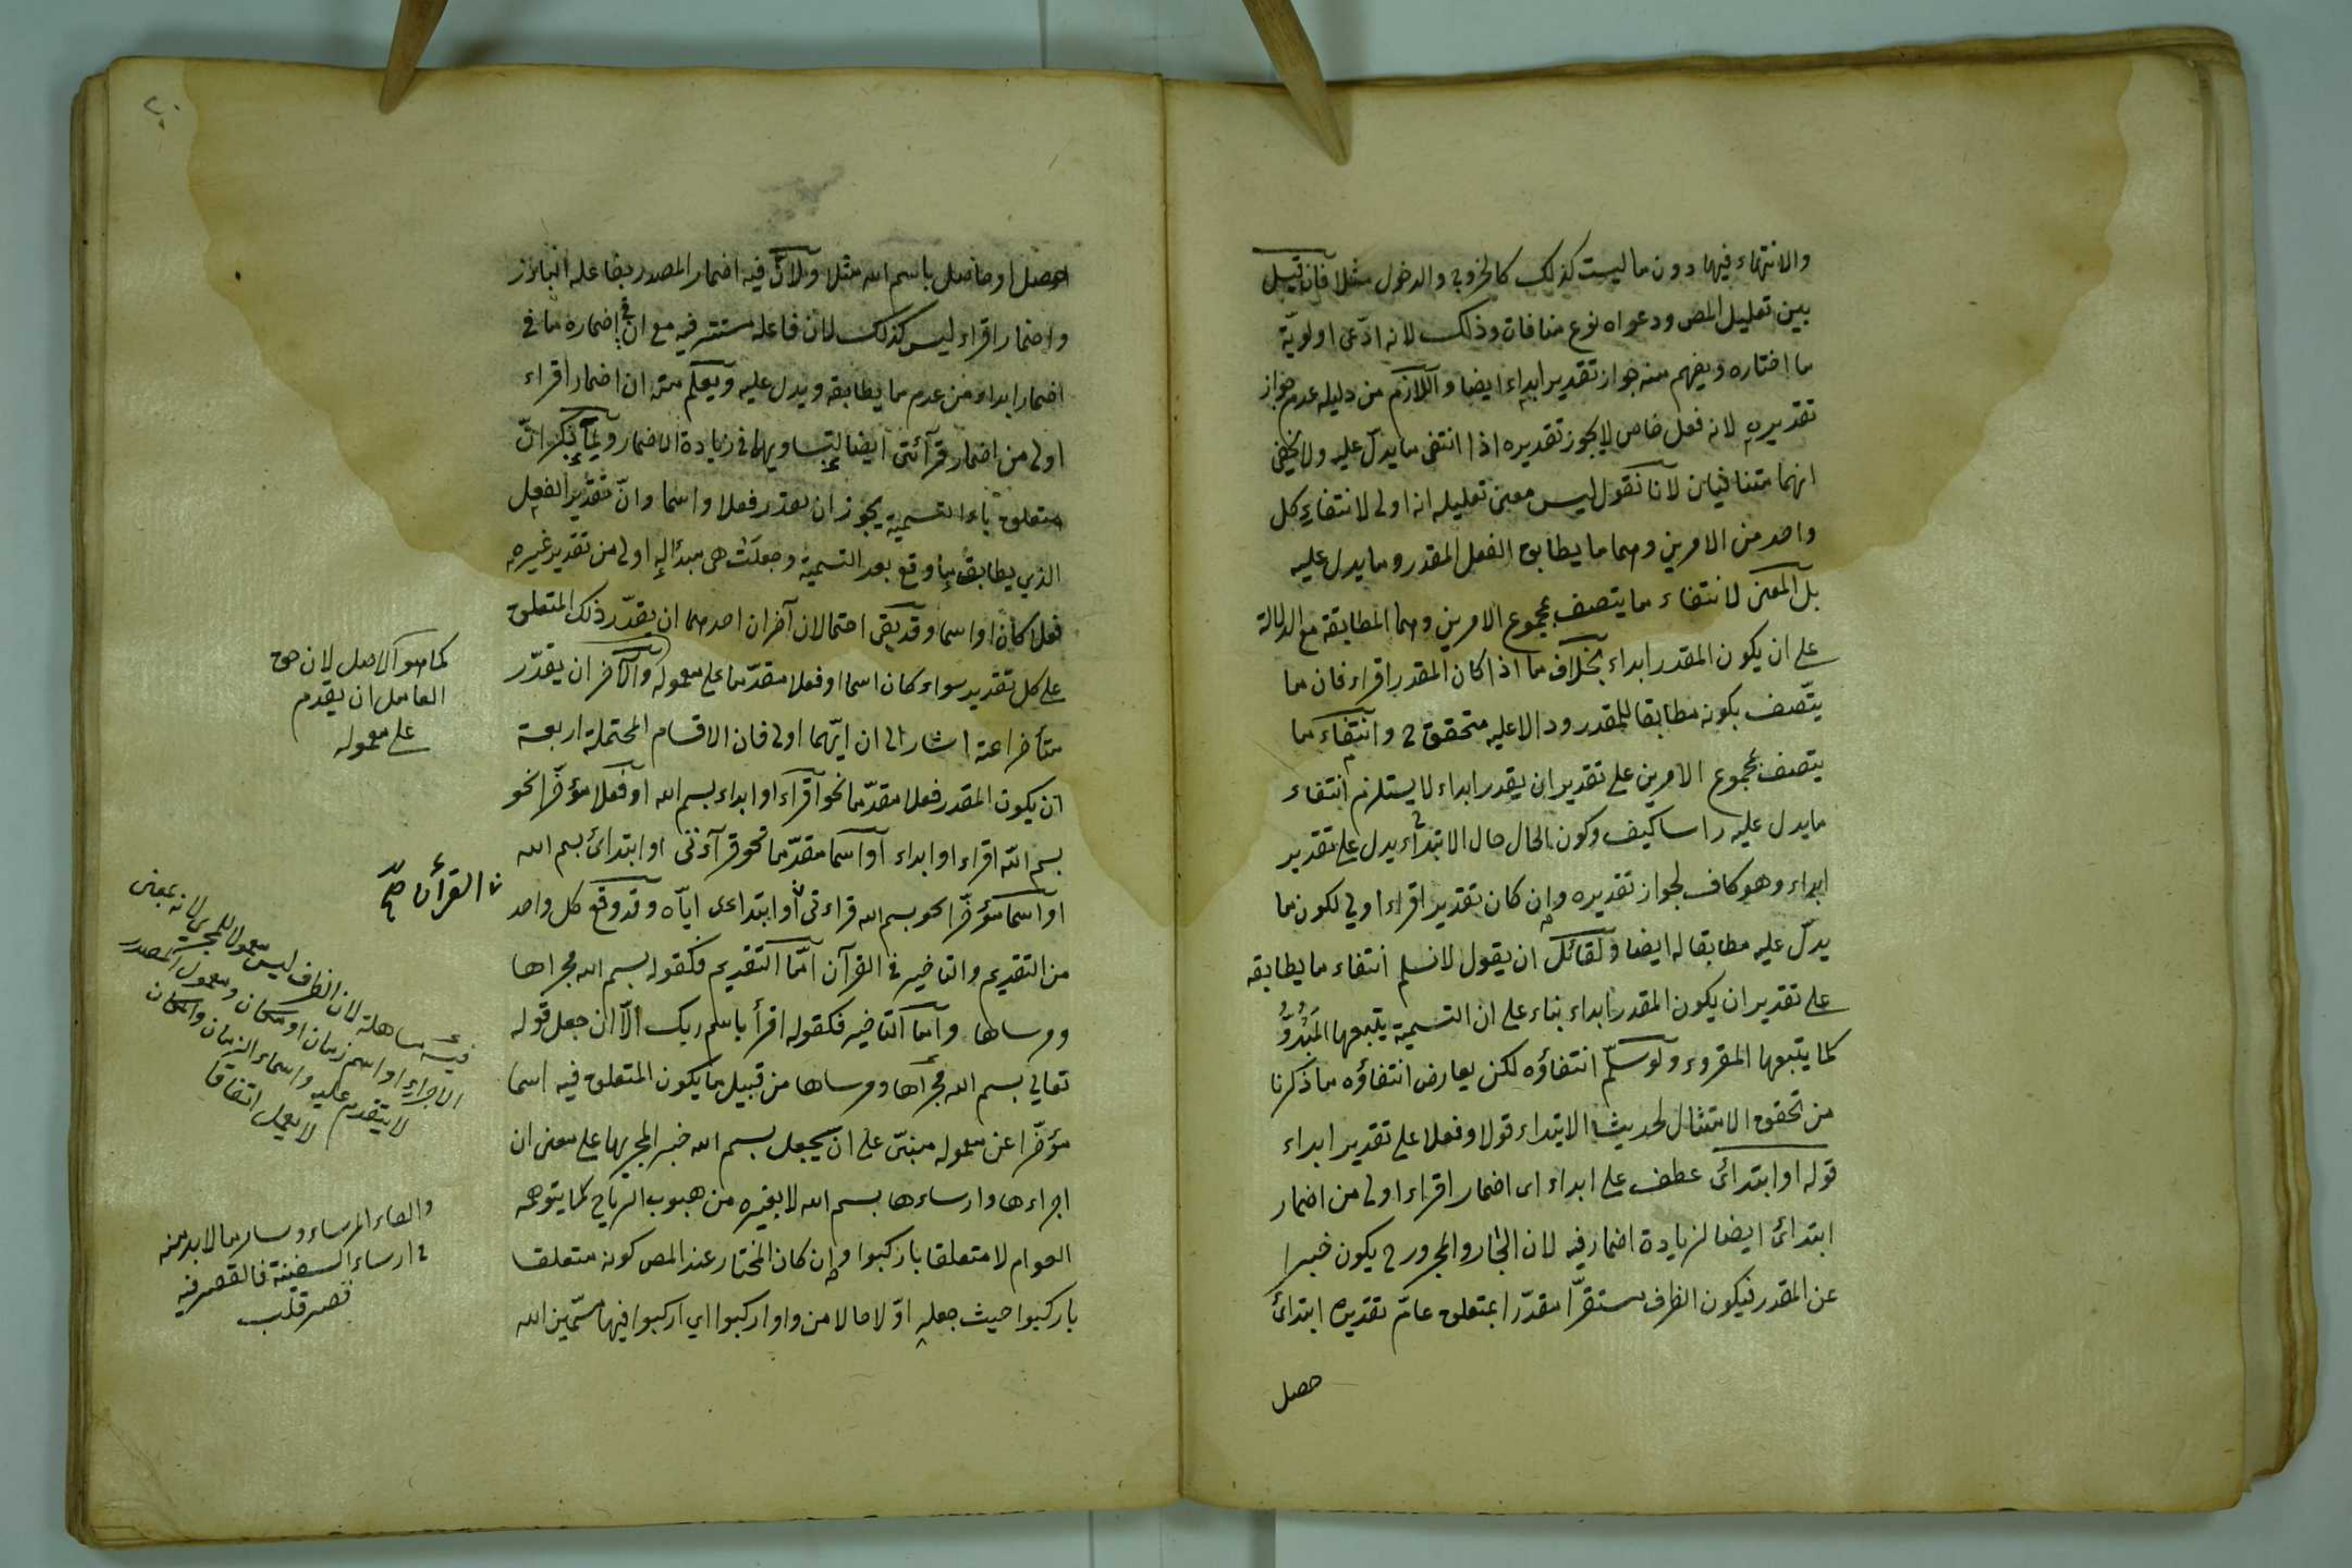 والانتهاء فيها دون ما ليست كذلك كالخروج والدخول مثلا فان قيل
بين تعليل المص ودعواه نوع منافات وذلك لانه ادّعى اولويّة
ما اختاره ويفهم منه جواز تقدير ابداء ايضا واللازم من دليله عدم جواز
تقديره لانه فعل خاص لا يجوز تقديره اذا انتفى ما يدلّ عليه ولا يخفى
انهما متنافيان لانا نقول ليس معنى تعليله انه اولى لانتفاء كل
واحد من الامرين وهما ما يطابق الفعل المقدر وما يدل عليه
بل المعنى لانتفاء ما يتصف بمجموع الامرين وهما المطابقة مع الدلالة
على ان يكون المقدر ابداء بخلاف ما اذا كان المقدر اقراء فان ما
يتّصف بكونه مطابقا للمقدر ودالا عليه متحقق ح وانتفاء ما
يتصف بمجموع الامرين على تقدير ان يقدر ابداء لا يستلزم انتفاء
ما يدل عليه راسا كيف وكون الحال حال الابتداء يدل على تقدير
ابداء وهو كاف لجواز تقديره وان كان تقدير اقراء اولى لكون ما
يدلّ عليه مطابقا له ايضا ولقائل ان يقول لا نسلم انتفاء ما يطابقه
على تقدير ان يكون المقدر ابداء بناء على ان التسمية يتبعها المَبْدُوُّ
كما يتبعها المقروء ولو سلّم انتفاؤه لكن يعارض انتفاؤه ما ذكرنا
من تحقق الامتثال لحديث الابتداء قولا وفعلا على تقدير ابداء
قوله او ابتدائ عطف على ابداء اى اضمار اقراء اولى من اضمار
ابتدائ ايضا لزيادة اضمار فيه لان الجار والمجرور ح يكون خبرا
عن المقدر فيكون الظرف مستقرّا مقدّرا بمتعلق عامّ تقديره ابتدائ
حصل
٢٠
حصل او حاصل باسم الله مثلا ولانّ فيه اضمار المصدر بفاعله البارز
واضمار اقراء ليس كذلك لان فاعله مستتر فيه مع ان في اضماره ما في
اضمار ابداء من عدم ما يطابقه ويدل عليه ويعلم منه ان اضمار اقراء
اولى من اضمار قرآئتى ايضا لتساويهما في زيادة الاضمار ولمّا ذكر انّ
متعلق باء التسمية يجوز ان يقدر فعلا واسما وانّ تقدير الفعل
الذي يطابق ما وقع بعد التسمية وجعلت هى مبدأ له اولى من تقدير غيره
فعلا كان او اسما وقد بقى احتمالان آخران احدهما ان يقدّر ذلك المتعلق
على كل تقدير سواء كان اسما او فعلا مقدّما على معموله والآخر ان يقدّر
متأخرا عنه اشار الى ان ايّهما اولى فان الاقسام المحتملة اربعة
ان يكون المقدر فعلا مقدّما نحو اقراء او ابداء بسم الله او فعلا مؤخّرا نحو
بسم الله اقراء او ابداء او اسما مقدّما نحو قرآءتى او ابتدائ بسم الله
او اسما مؤخّرا نحو بسم الله قراءتى او ابتداءى ايّاه وقد وقع كل واحد
من التقديم والتاخير في القرآن امّا التقديم فكقوله بسم الله مجراها
ومرساها وامّا التاخير فكقوله اقرأ باسم ربك الّا ان جعل قوله
تعالى بسم الله مجراها ومرساها من قبيل ما يكون المتعلق فيه اسما
مؤخّرا عن معموله مبنىّ على ان يجعل بسم الله خبر المجريها على معنى ان
اجراءها وارساءها بسم الله لا بغيره من هبوب الرياح كما يتوهمه
العوام لا متعلقا باركبوا وان كان المختار عند المص كونه متعلقا
باركبوا حيث جعله اوّلا حالا من واو اركبوا اي اركبوا فيها مسمّين الله
كما هو الاصل لان حق
العامل ان يقدم
على معموله
القرأن صح
فيه مساهلة لان الظرف ليس معمولا للمجرى لانه بمعنى
الاجراء او اسم زمان او مكان ومعمول المصدر
لا يتقدم عليه واسماء الزمان والمكان
لا يعمل اتفاقا
والقاء المرساء وسائر ما لا بد منه
في ارساء السفينة فالقصر فيه
قصر قلب